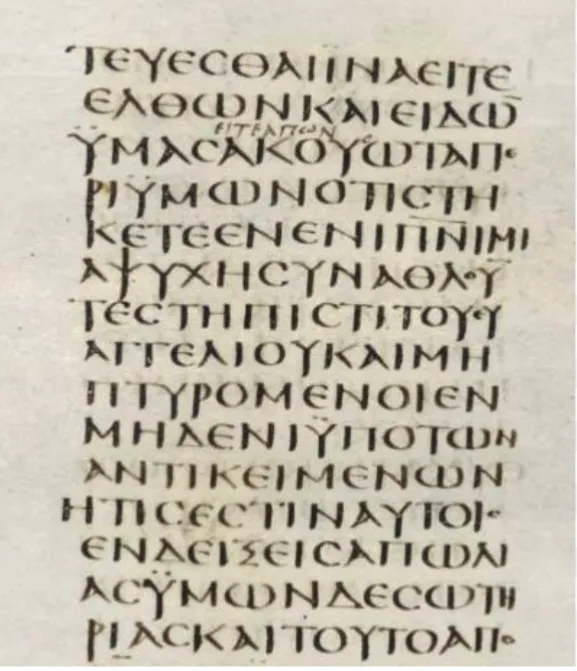 ΤΕΥΕϹΘΑΙΙΝΑΕΙΤΕ
ΕΛΘΩΝΚΑΙΕΙΔΩ̅
ΕΙΤΕΑΠΩΝ
ΫΜΑϹΑΚΟΥΩΤΑΠΕ
ΡΙΫΜΩΝΟΤΙϹΤΗ
ΚΕΤΕΕΝΕΝΙΠ̅Ν̅Ι̅ΜΙ
ΑΨΥΧΗϹΥΝΑΘΛΟΥ̅
ΤΕϹΤΗΠΙϹΤΙΤΟΥΕΥ
ΑΓΓΕΛΙΟΥΚΑΙΜΗ
ΠΤΥΡΟΜΕΝΟΙΕΝ
ΜΗΔΕΝΙΫΠΟΤΩΝ
ΑΝΤΙΚΕΙΜΕΝΩΝ
ΗΤΙϹΕϹΤΙΝΑΥΤΟΙϹ
ΕΝΔΕΙΞΕΙϹΑΠΩΛΙ
ΑϹΫΜΩΝΔΕϹΩΤΗ
ΡΙΑϹΚΑΙΤΟΥΤΟΑΠΟ